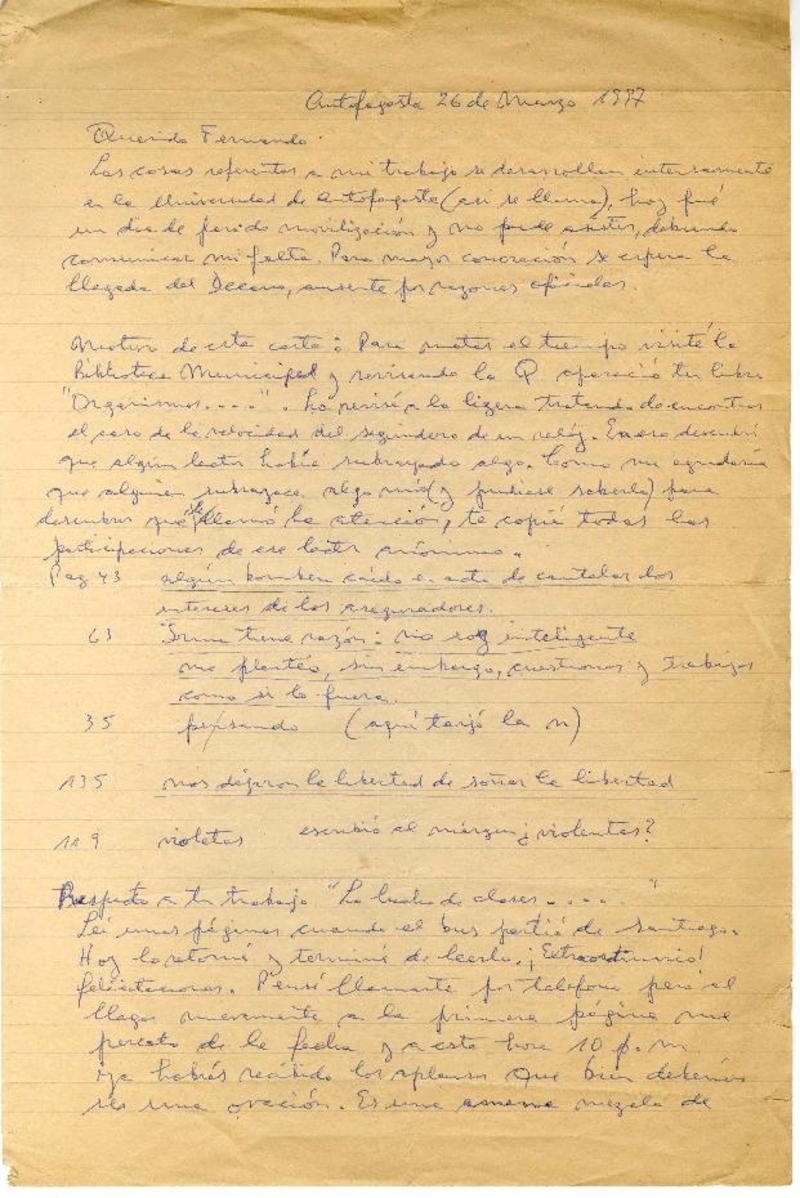 Antofagasta 26 de Marzo 1997
Querido Fernando.
Las cosas referentes a mi trabajo se desarrollan intensamente
en la Universidad de Antofagasta (así se llama), hoy fué
un dia de movilización y no pude asistir, debiendo
comunicar mi falta. Para mayor concreción se espera la
llegada del Decano, ausente por razones oficiales.
Motivo de esta carta: Para matar el tiempo visité la
Biblioteca Municipal y revisando la Q apareció tu libro
"Organismos....". Lo revisé a la ligera tratando de encontrar
el caso de la velocidad del segundero de un reloj. En eso descubrí
que algún lector había subrayado algo. Como me agradaría
que alguien subrayace algo mío (y pudiese saberlo) para
descubrir qué le llamó la atención, te copié todas las
participaciones de ese lector anónimo.
Pag 43 algún bombero caído en acto de cautelar los
intereses de los aseguradores.
63 tiene razón: no soy inteligente
me planteo, sin embargo, cuestiones y trabajos
como si lo fuera.
35 pensando (aquí tarjó la n)
135 nos dejaron la libertad de soñar la libertad
119 violetas escribió al márgen ¿violentas?
Respecto a tu trabajo "La lucha de clases...."
Leí unas páginas cuando el bus partió de Santiago.
Hoy lo retomé y terminé de leerlo. ¡Extraordinario!
felicitaciones. Pensé llamarte por teléfono pero al
llegar nuevamente a la primera página me
percato de la fecha y a esta hora 10 p.m
ya habrás recibido los aplausos que bien deberían
ser una ovación. Es una amena mezcla de